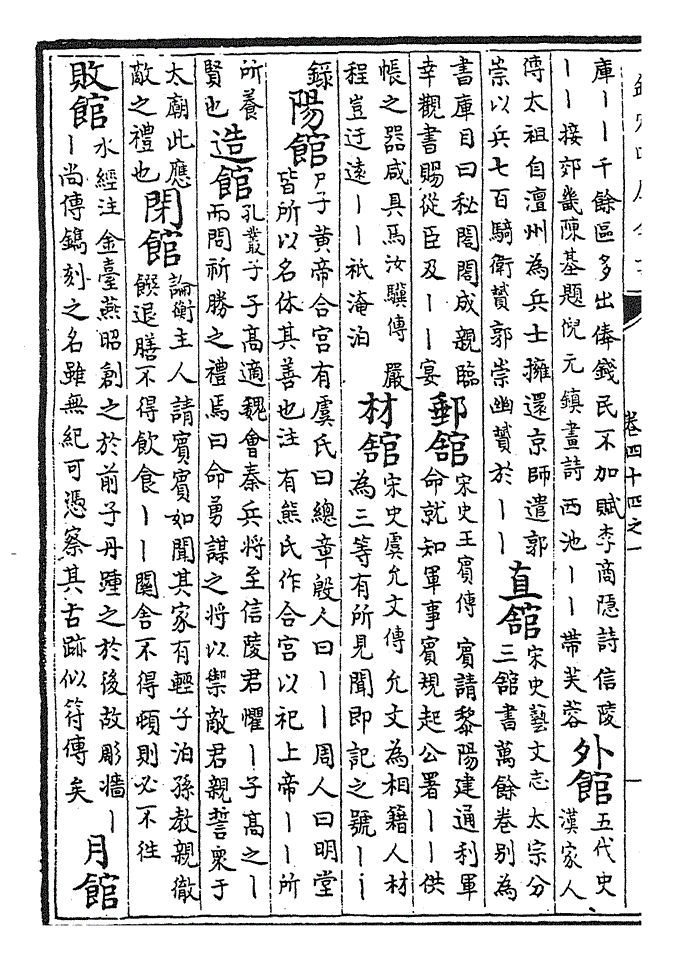 卷四十四之一
庫丨丨千餘區多出俸錢民不加賦李商隱詩信陵
丨丨接郊畿陳基題倪元鎮畫詩西池丨丨帶芙蓉
外館
五代史
漢家人
傳太祖自澶州為兵士擁還京師遣郭
崇以兵七百騎衛贇郭崇幽贇於丨丨
直館
宋史藝文志太宗分
三館書萬餘卷别為
書庫目曰秘閣閣成親臨
幸觀書賜從臣及丨丨宴
郵館
宋史王賓傳賓請黎陽建通利軍
命就知軍事賓規起公署丨丨供
帳之器咸具焉汝驥傳嚴
程豈迂遠丨丨祇淹泊
材館
宋史虞允文傳允文為相籍人材
為三等有所見聞即記之號丨丨
錄
陽館
尸子黃帝合宫有虞氏曰總章殷人曰丨丨周人曰明堂
皆所以名休其善也注有熊氏作合宫以祀上帝丨丨所
所養
賢也
造館
孔叢子子高適魏會秦兵將至信陵君懼丨子高之丨
而問祈勝之禮焉曰命勇謀之將以禦敵君親誓衆于
太廟此應
敵之禮也
閉館
論衡主人請賓賓如聞其家有輕子洎孫教親徹
餱退膳不得飲食丨丨闗舍不得頓則必不往
敗館
水經注金臺燕昭創之於前子丹踵之於後故彫墻丨
丨尚傳鐫刻之名雖無紀可憑察其古跡似符傳矣
月館